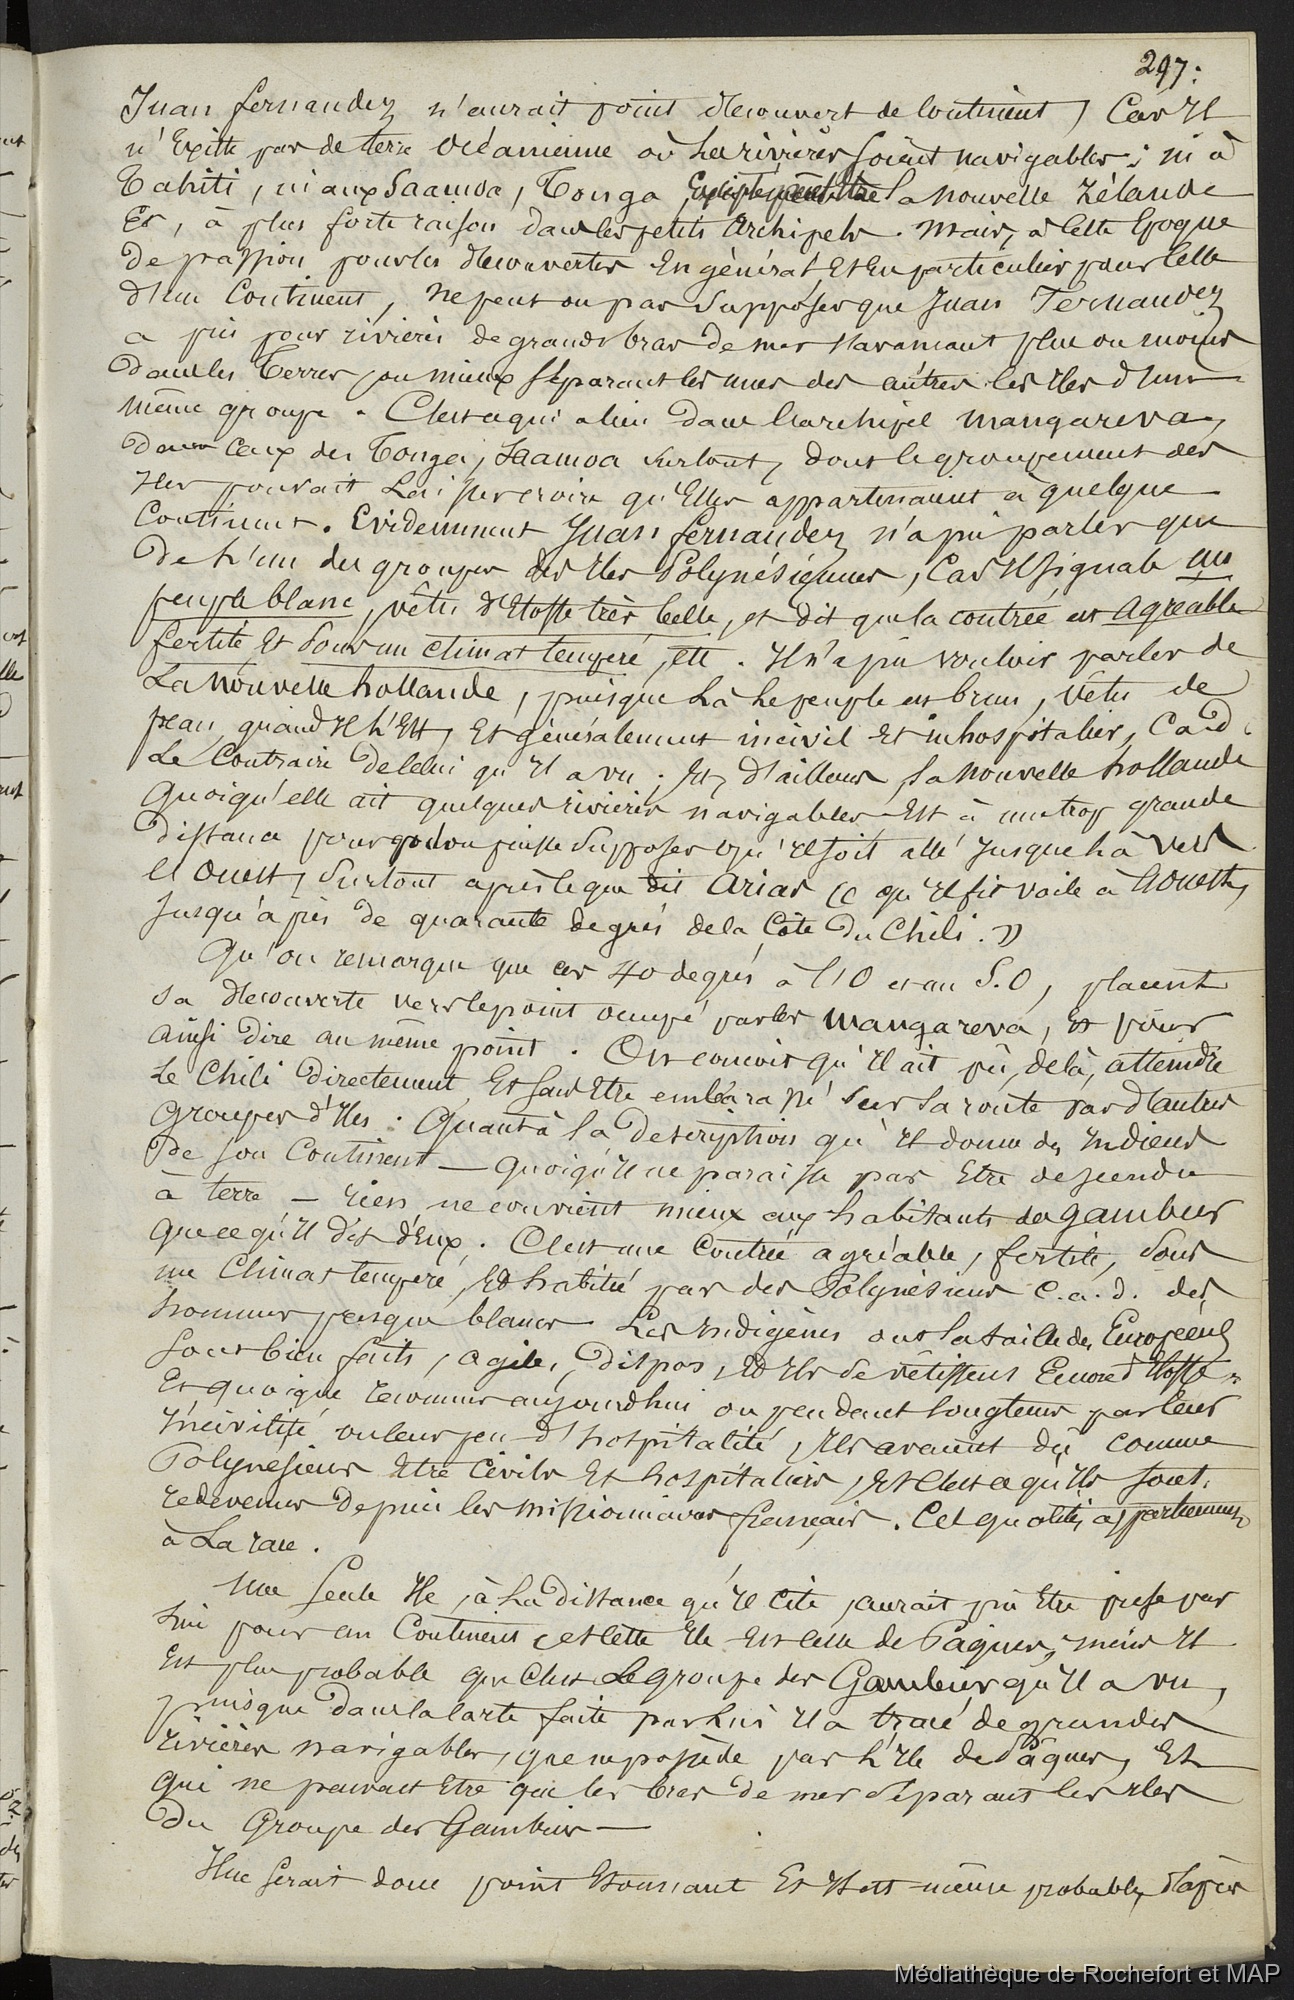 297:
Juan fernandez n'aurait point découvert de Continent, Car Il
n'Existe pas de terre Océanienne où les rivières soient navigables ; ni à
Tahiti, ni aux Saamoa, Tonga, la nouvelle Zélande
Et, à plus forte raison dans les petits Archipels. Mais, à cette Epoque
De passion pour les découvertes En général, Et En particulier pour celle
d'un Continent, ne peut on pas Supposer que Juan Fernandez
a pris pour rivières de grands bras de mer s'avançant plus ou moins
dans les Terres, ou mieux séparant les unes des autres les Iles d'un
même groupe. C'est ce qui a lieu dans l'archipel mangareva,
dans ceux des Tonga, Saamoa surtout, dont le groupement des
Iles pouvait Laisser croire qu'Elles appartenaient à quelque
Continent. Evidemment Juan fernandez n'a pu parler que
De L'un des groupes des Iles Polynésiennes, Car Il signale un
peuple blanc, vêtu d'Etoffe très belle, et dit que la contrée est agréable
fertile Et Sous un climat tempéré, etc. Il n'a pu vouloir parler de
La nouvelle hollande, puisque Là le peuple est brun, vêtu de
peau, quand Il L'Est, Et généralement incivil Et inhospitalier, C.a.d.
Le Contraire de celui qu'Il a vu ; Et, d'ailleurs, la nouvelle hollande
Quoiqu'elle ait quelques rivières navigables, Est à une trop grande
distance pour qu'on puisse Supposer qu'Il soit allé Jusque là vers
l'Ouest, Surtout après ce que dit Arias « qu'Il fit voile à l'Ouest,
Jusqu'à près de quarante degrés de la Côte du Chili. »
Qu'on remarque que ces 40 degrés à l'O et au S.O, placent
sa découverte vers le point occupé par les mangareva, Et pour
ainsi dire au même point. On conçoit qu'Il ait pu, delà, atteindre
le Chili directement Et sans Etre embarassé Sur sa route par d'autres
Groupes d'Iles ; Quant à la description qu'Il donne des Indiens
De son Continent — quoiqu'Il ne paraisse pas Etre descendu
à terre — rien ne convient mieux aux habitants des gambier
que ce qu'Il dit d'Eux. C'est une Contrée agréable, fertile, Sous
un Climat tempéré, Et habitée par des Polynésiens C.a.d. des
hommes presque blancs. Les Indigènes ont la taille des Européens
Sont bien faits, agiles, dispos, Et Ils se vêtissent Encore d'Etoffe.
Et quoique reconnus aujourd'hui ou pendant longtems par leur
Incivilité ou leur peu d'hospitalité, Ils avaient dû comme
Polynésiens Etre Civils Et hospitaliers, Et C'est ce qu'Ils sont
redevenus depuis les missionnaires français. Ces qualités appartiennent
à La race.
Une Seule Ile, à La distance qu'Il cite, aurait pu Etre prise par
lui pour un Continent, et cette Ile Est celle de Pâques, mais Il
Est plus probable que C'est Le groupe des Gambier qu'Il a vu,
puisque dans la Carte faite par Lui Il a tracé de grandes
rivières navigables, que ne possède pas L'Ile de Pâques, Et
Qui ne peuvent Etre que les bras de mer séparant les Iles
Du Groupe des Gambier —
Il ne serait donc point Etonnant Et Il Est même probable, d'après
Médiathèque de Rochefort et MAP